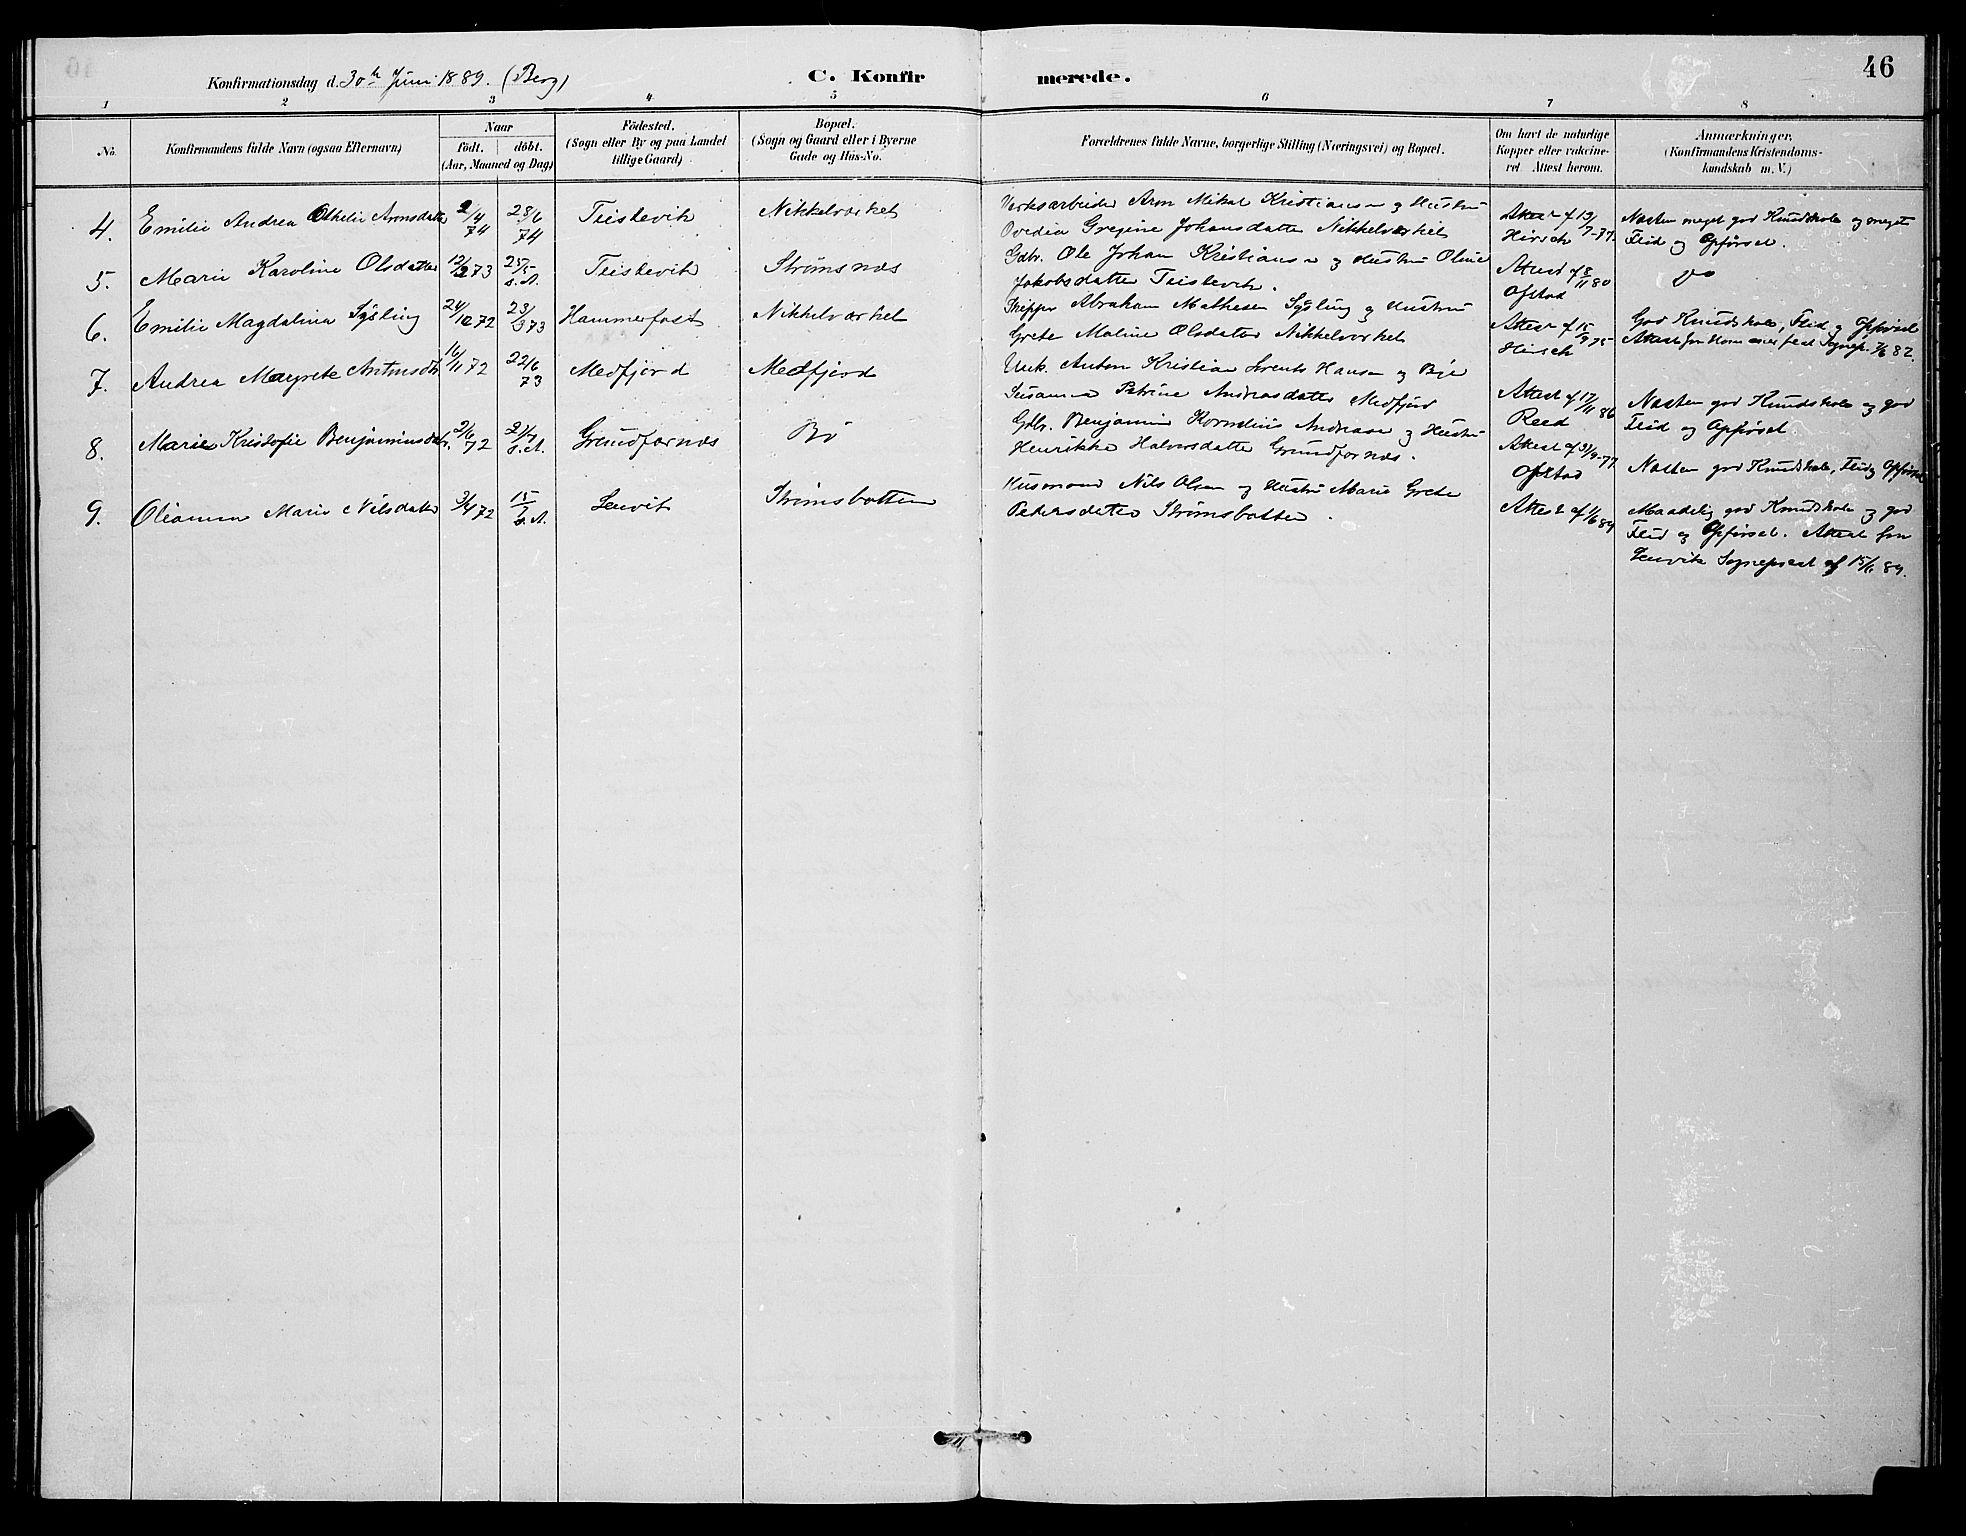 46
Konfirmationsdag d. 30te Juni 1889. (Berg)
C. Konfirmerede.
1 2 3 4 5 6 7 8
No.
Konfirmandens fulde Navn (ogsaa Efternavn)
Naar
födt. döbt.
(Aar, Maaned og Dag)
Födested.
(Sogn eller By og paa Landet
tillige Gaard)
Bopæl.
(Sogn og Gaard eller i Byerne
Gade og Hus-No.
Forældrenes fulde Navne, borgerlige Stilling (Næringsvei) og Bopæl.
Om havt de naturlige
Kopper eller vakcine-
ret Attest herom.
Anmærkninger,
(Konfirmandens Kristendoms-
kundskab m. V.)
4. Emilie Andrea Othelie Aronsdatter 2/4 74 28/6 74 Teistevik Nikkelværket
Værksarbeider Aron Mikal Kristiansen og Hustru
Ovedia Gregine Johansdatter Nikkelværket
Attest af 19/7-77.
Hirsch
Næsten meget god Kundskab og meget
Flid og Opførsel.
5. Marie Karoline Olsdatter 12/2 73 25/5 s. A. Teistevik Strømsnæs
Gdbr. Ole Johan Kristiansen og Hustru Oline
Jakobsdatter Teistevik.
Attest af 8/11 80
Ofstad
Do
6. Emilie Magdalina Sÿsling 24/12 72 23/3 73 Hammerfest Nikkelværket
Skipper Abraham Mathesen Sÿsling og Hustru
Grete Maline Olsdatter Nikkelværket
Attest af 15/9 75
Hirsch
God Kundskab, Flid og Opførsel
Attest fra Hammerfest Sognep. 7/6 82.
7. Andrea Margrete Antonsdtr 16/11 72 22/6 73 Medfjord Medfjord
Unk. Anton Kristian Lorents Hansen og Pige
Susanna Petrine Andreasdatter Medfjord
Attest af 17/11 86
Reed
Næsten god Kundskab og god
Flid og Opførsel.
8. Marie Kristofie Benjaminsdtr. 2/6 72 21/7 s. A. Grundfarnæs Bø
Gdbr. Benjamin Kornelius Andreasen og Hustru
Henrikke Halvorsdatter Grundfarnæs.
Attest af 3/9-77
Ofstad
Næsten god Kundskab, Flid og Opførsel
9. Olianna Marie Nilsdatter 3/4 72 15/7 s. A. Lenvik Strømsbotten
Husmand Nils Olsen og Hustru Marie Grete
Pedersdatter Strømsbotten.
Attest af 1/6 89
Maadelig god Kundskab og god
Flid og Opførsel. Attest fra
Lenvik Sogneprest af 15/6 89.